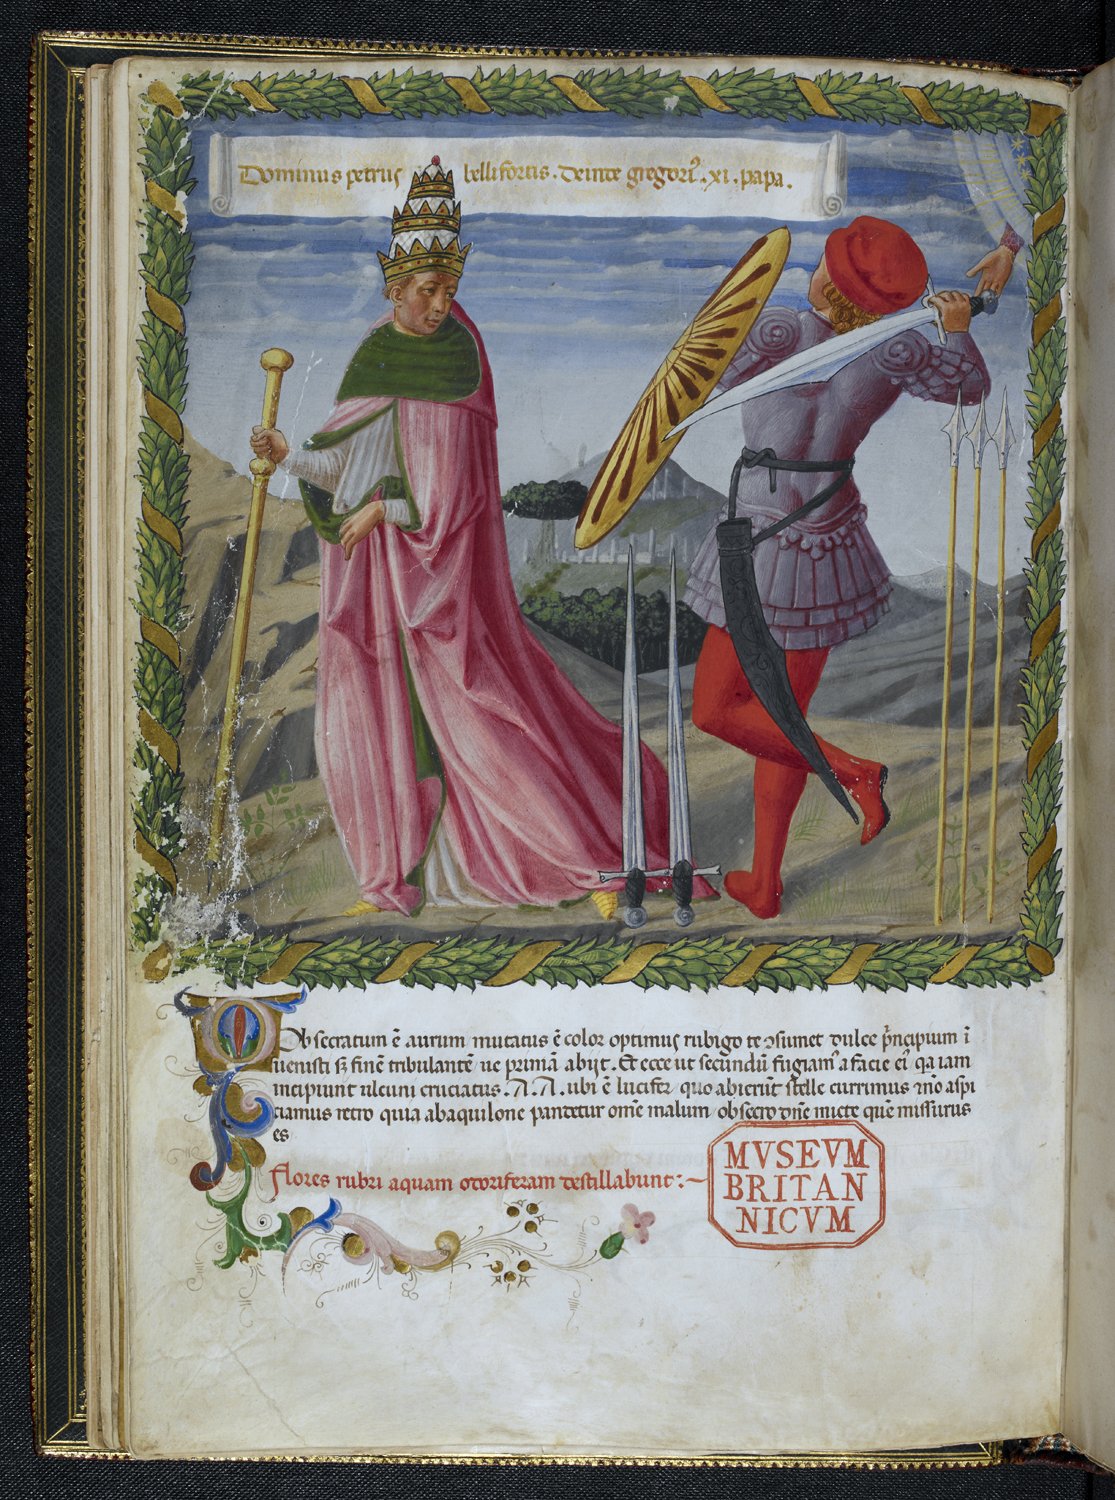 Dominus petrus bellifortis. deinde gregoriꝰ. xi. papa.
Obsecratum ē aurum mutatus ē color optimus rubigo te ↄsumet dulce pͥncipium ī
uenisti sꝫ finē tribulantē ue primā abijt. Et ecce ut secundū fugiamꝰ a facie eiꝰ qa iam
incipiunt cruciatus. A. A. ubi ē lucifer quo abierūt stelle currimus aspi
ciamus retro quia ab aquilone pandetur omē malum obsecro dnē micte quē missurus
es
Flores rubri aquam odoriferam destillabunt:~
MVSEVM
BRITAN
NICVM